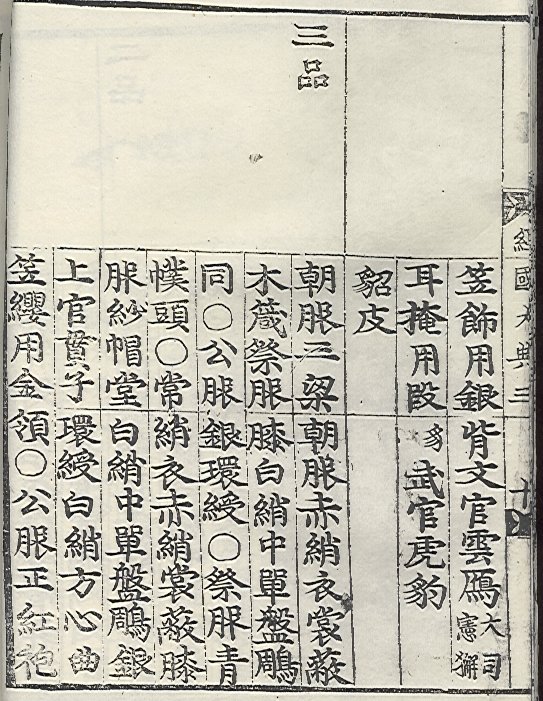 經國大典三
十
笠飾用銀
耳掩用段
貂皮
背文官雲鴈大司憲獬
豸武官虎豹
三品
朝服三梁
木箴祭服
同○公服
幞頭○常
服紗帽堂
上官貫子
笠纓用金
朝服赤綃衣裳蔽
膝白綃中單盤鵰
銀環綬○祭服青
綃衣赤綃裳蔽膝
白綃中單盤鵰銀
環綬白綃方心曲
領○公服正紅袍